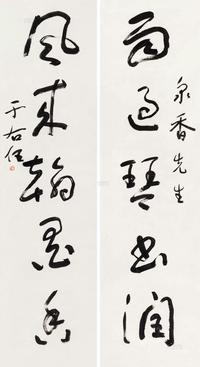 泉香先生
雨過琴書潤
風來翰墨香
于右任